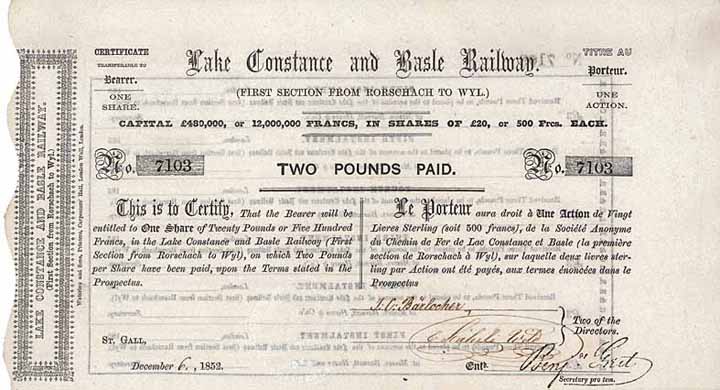 CERTIFICATE
TRANSFERABLE TO
Bearer.
ONE
SHARE.
Lake Constance and Basle Railway.
(FIRST SECTION FROM RORSCHACH TO WYL.)
TITRE AU
Porteur.
UNE
ACTION.
CAPITAL £480,000, or 12,000,000 FRANCS, IN SHARES OF £20, or 500 Frcs. EACH.
No. 7103
TWO POUNDS PAID.
No. 7103
This is to Certify, That the Bearer will be
entitled to One Share of Twenty Pounds or Five Hundred
Francs, in the Lake Constance and Basle Railway (First
Section from Rorschach to Wyl), on which Two Pounds
per Share have been paid, upon the Terms stated in the
Prospectus.
Le Porteur aura droit à Une Action de Vingt
Livres Sterling (soit 500 francs), de la Société Anonyme
du Chemin de Fer de Lac Constance et Basle (la première
section de Rorschach à Wyl), sur laquelle deux livres ster-
ling par Action ont été payés, aux termes énoncées dans le
Prospectus
J. C. Bärlocher
Two of the
Directors.
ST. GALL,
December 6, 1852.
Entd.
Secretary pro tem.
LAKE CONSTANCE AND BASLE RAILWAY.
(First Section from Rorschach to Wyl.)
Waterlow and Sons, Printers, Carpenters' Hall, London Wall, London.